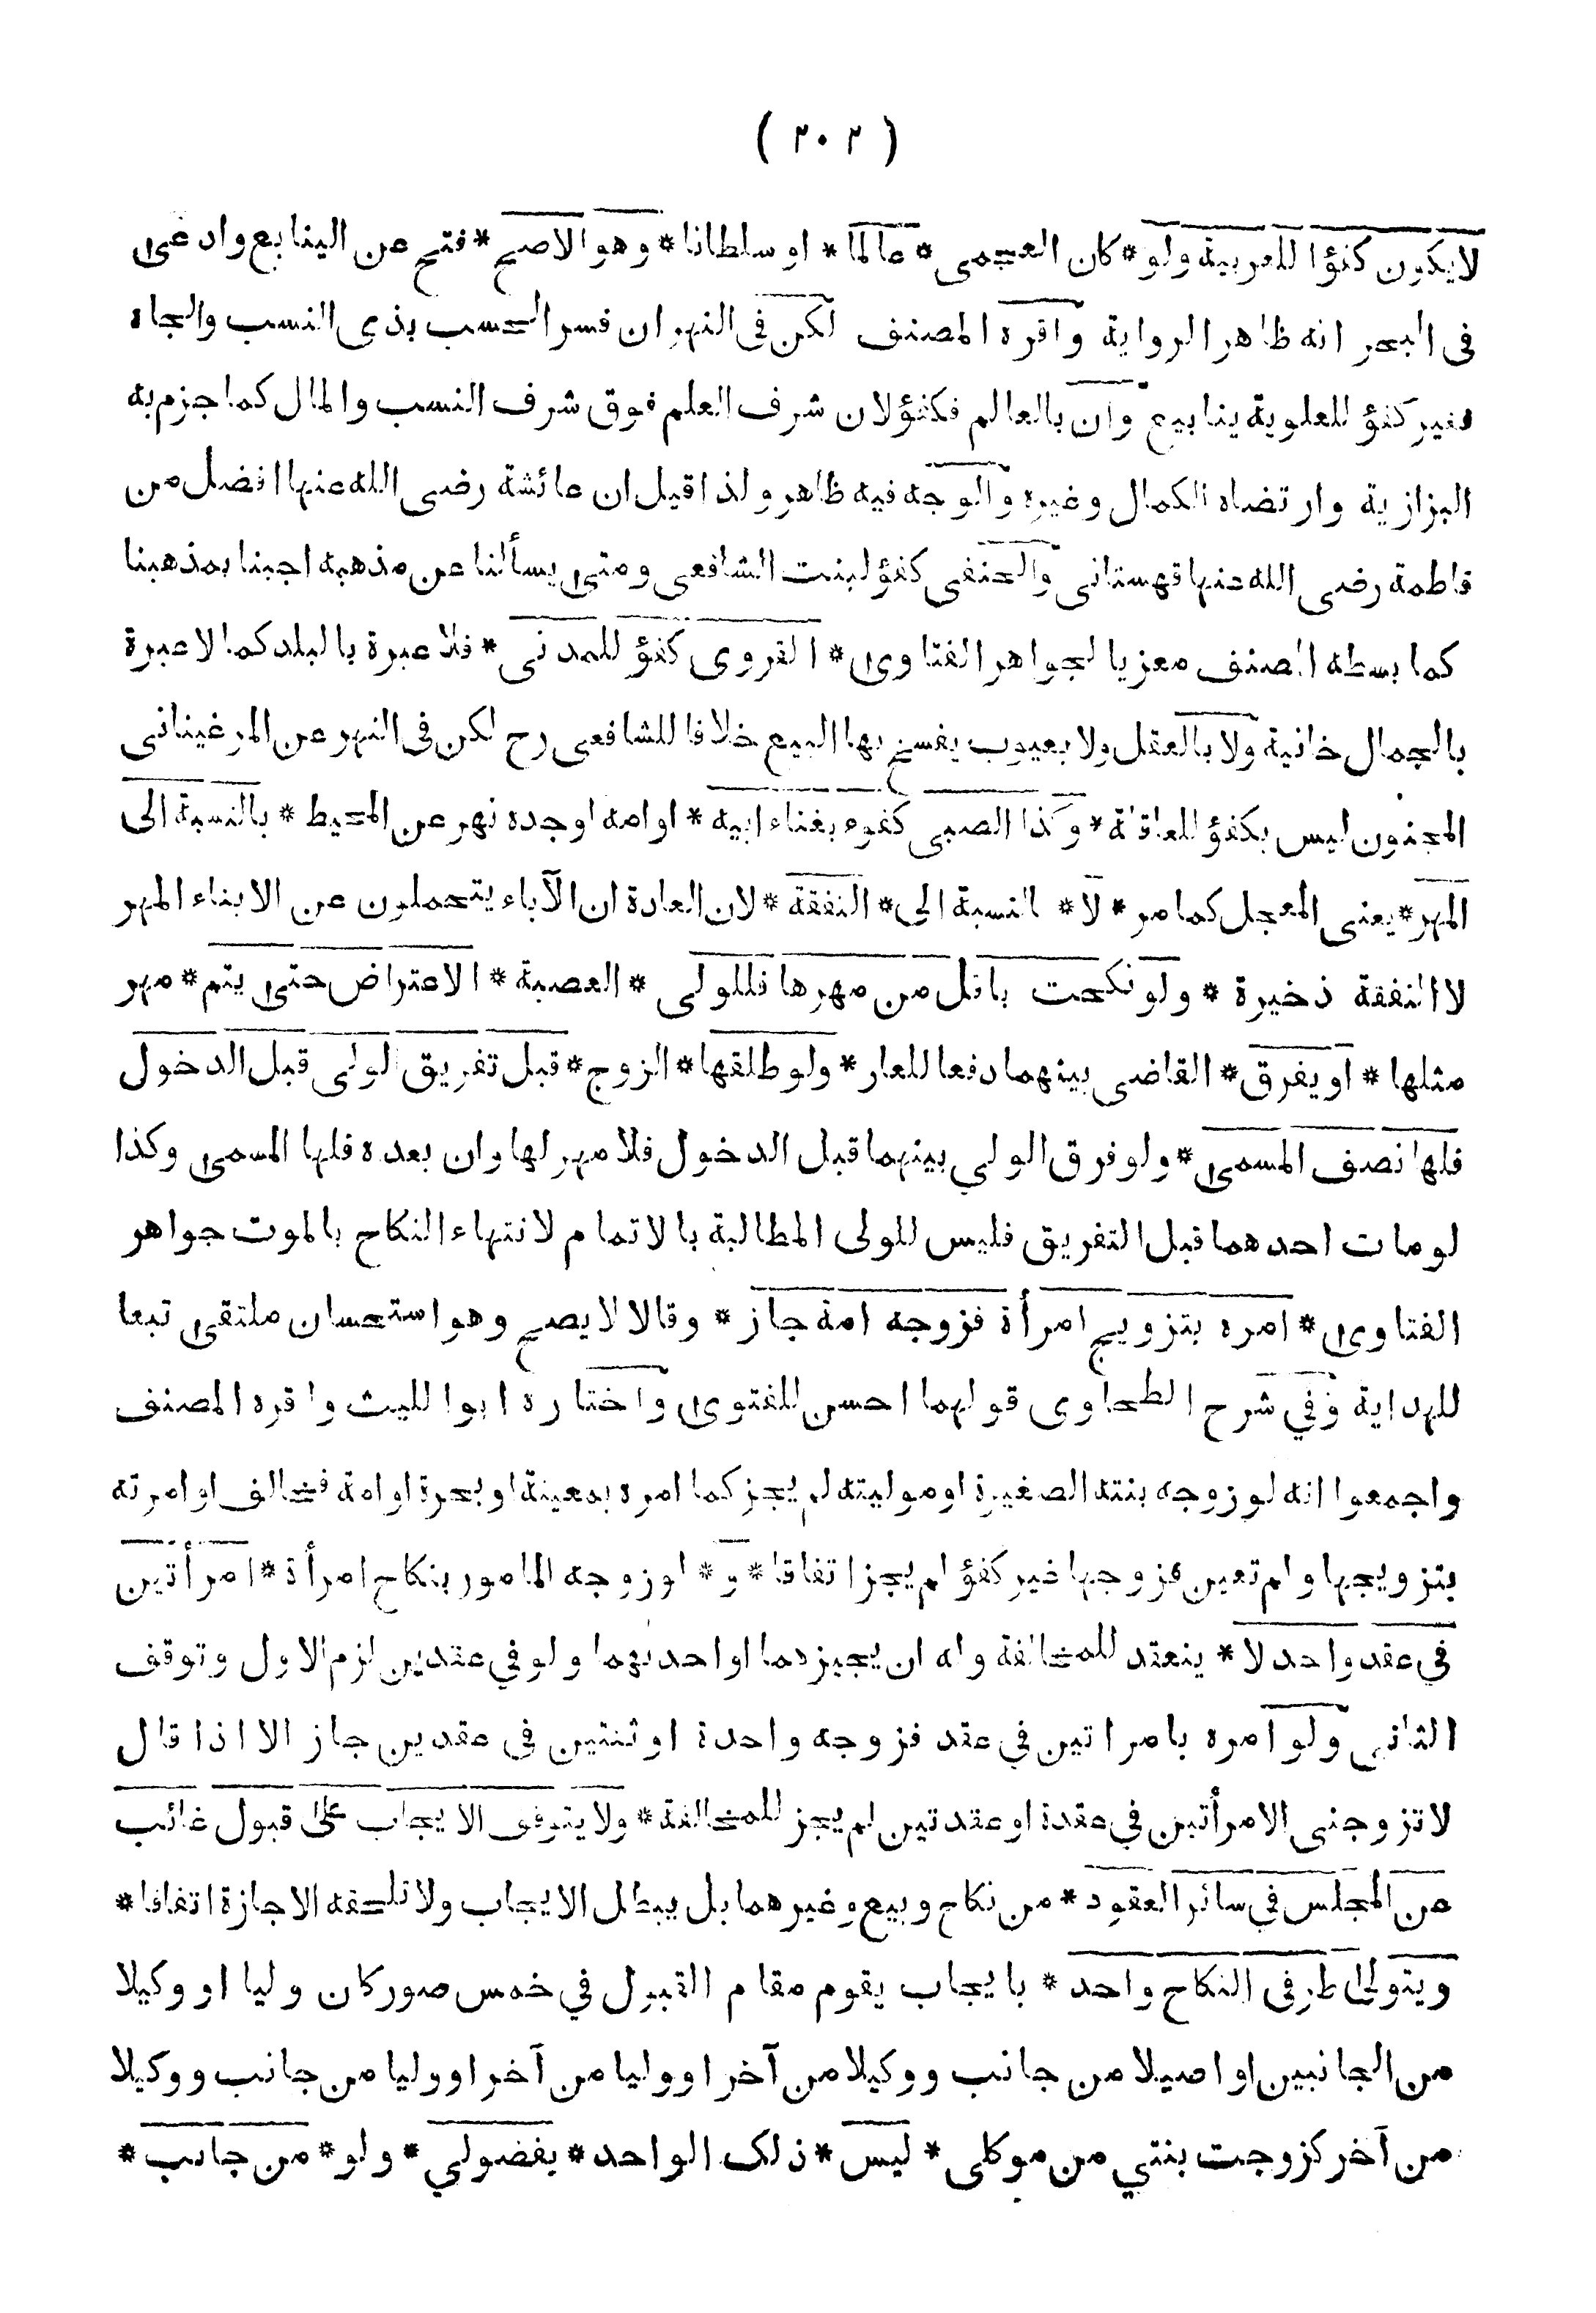 ( ٢٠٢ )
لايكون كفؤا للعربية ولو * كان العجمى * عالما * او سلطانا * وهو الاصح * فتح عن الينابع وادعى
فى البحر انه ظاهر الرواية واقره المصنف لكن فى النهر ان فسر الحسب بذى النسب والجاه
فغير كفؤ للعلوية ينابيع وان بالعالم فكفؤ لان شرف العلم فوق شرف النسب والمال كما جزم به
البزازية وارتضاه الكمال وغيره والوجه فيه ظاهر ولذا قيل ان عائشة رضى الله عنها افضل من
فاطمة رضى الله عنها قهستانى والحنفى كفؤ لبنت الشافعى ومتى يسألنا عن مذهبه اجبنا بمذهبنا
كما بسطه المصنف معزيا لجواهر الفتاوى * القروى كفؤ للمدنى * فلا عبرة بالبلد كما لا عبرة
بالجمال خانية ولا بالعقل ولا بعيوب يفسخ بها البيع خلافا للشافعى رح لكن فى النهر عن المرغينانى
المجنون ليس بكفؤ للعاقلة * وكذا الصبى كفوء بغناء ابيه * او امه او جده نهر عن المحيط * بالنسبة الى
المهر * يعنى المعجل كما مر * لا * بالنسبة الى * النفقة * لان العادة ان الآباء يتحملون عن الابناء المهر
لا النفقة ذخيرة * ولو نكحت باقل من مهرها فللولى * العصبة * الاعتراض حتى يتم * مهر
مثلها * او يفرق * القاضى بينهما دفعا للعار * ولو طلقها * الزوج * قبل تفريق الولى قبل الدخول
فلها نصف المسمى * ولو فرق الولي بينهما قبل الدخول فلا مهر لها وان بعده فلها المسمى وكذا
لو مات احدهما قبل التفريق فليس للولى المطالبة بالاتمام لانتهاء النكاح بالموت جواهر
الفتاوى * امره بتزويج امرأة فزوجه امة جاز * وقالا لا يصح وهو استحسان ملتقى تبعا
للهداية وفي شرح الطحاوى قولهما احسن للفتوى واختاره ابوا لليث واقره المصنف
واجمعوا انه لو زوجه بنته الصغيرة او موليته لم يجز كما امره بمعينة او بحرة او امة فخالف او امرته
بتزويجها ولم تعين فزوجها غير كفؤ لم يجز اتفاقا * و * لو زوجه المامور بنكاح امرأة * امرأتين
في عقد واحد لا * ينعقد للمخالفة وله ان يجيزهما او احديهما ولو في عقدين لزم الاول وتوقف
الثانى ولو امره بامراتين في عقد فزوجه واحدة او ثنتين في عقدين جاز الا اذا قال
لا تزوجنى الا مرأتين في عقدة او عقدتين لم يجز للمخالفة * ولا يتوقف الايجاب على قبول غائب
عن المجلس في سائر العقود * من نكاح وبيع وغيرهما بل يبطل الايجاب ولا تلحقه الاجازة اتفاقا *
ويتولى طرفى النكاح واحد * بايجاب يقوم مقام القبول في خمس صور كان وليا او وكيلا
من الجانبين او اصيلا من جانب ووكيلا من آخر او وليا من آخر او وليا من جانب ووكيلا
من آخر كزوجت بنتي من موكلى * ليس * ذلك الواحد * بفضولي * ولو * من جانب *